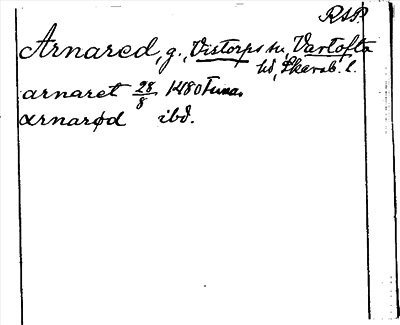 RAP.
Arnared, g., Vistorps sn, Vartofta
hd, Skarab. l.
arnaret 28/8 1480
arnarød ibd.